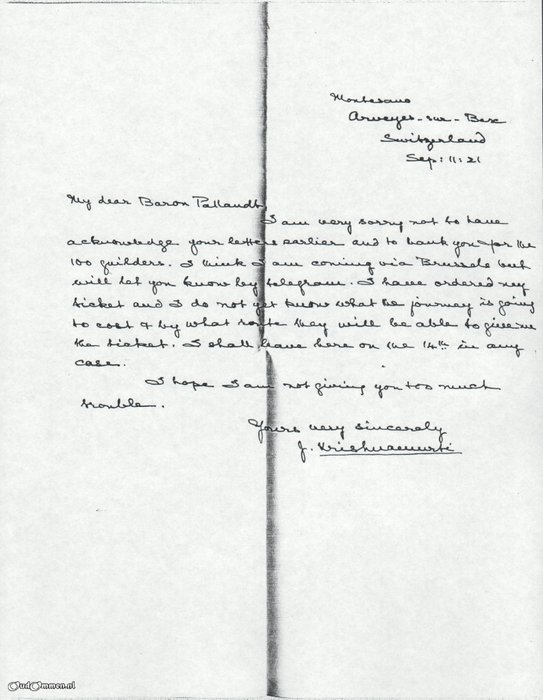 Montesano
Arveyes-sur-Bex
Switzerland
Sep: 11: 21
My dear Baron Pallandt
I am very sorry not to have
acknowledge your letters earlier and to thank you for the
100 guilders. I think I am coming via Brussels but
will let you know by telegram. I have ordered my
ticket and I do not yet know what the journey is going
to cost & by what route they will be able to give me
the ticket. I shall leave here on the 14th in any
case.
I hope I am not giving you too much
trouble.
Yours very sincerely
J. Krishnamurti
OudOmmen.nl